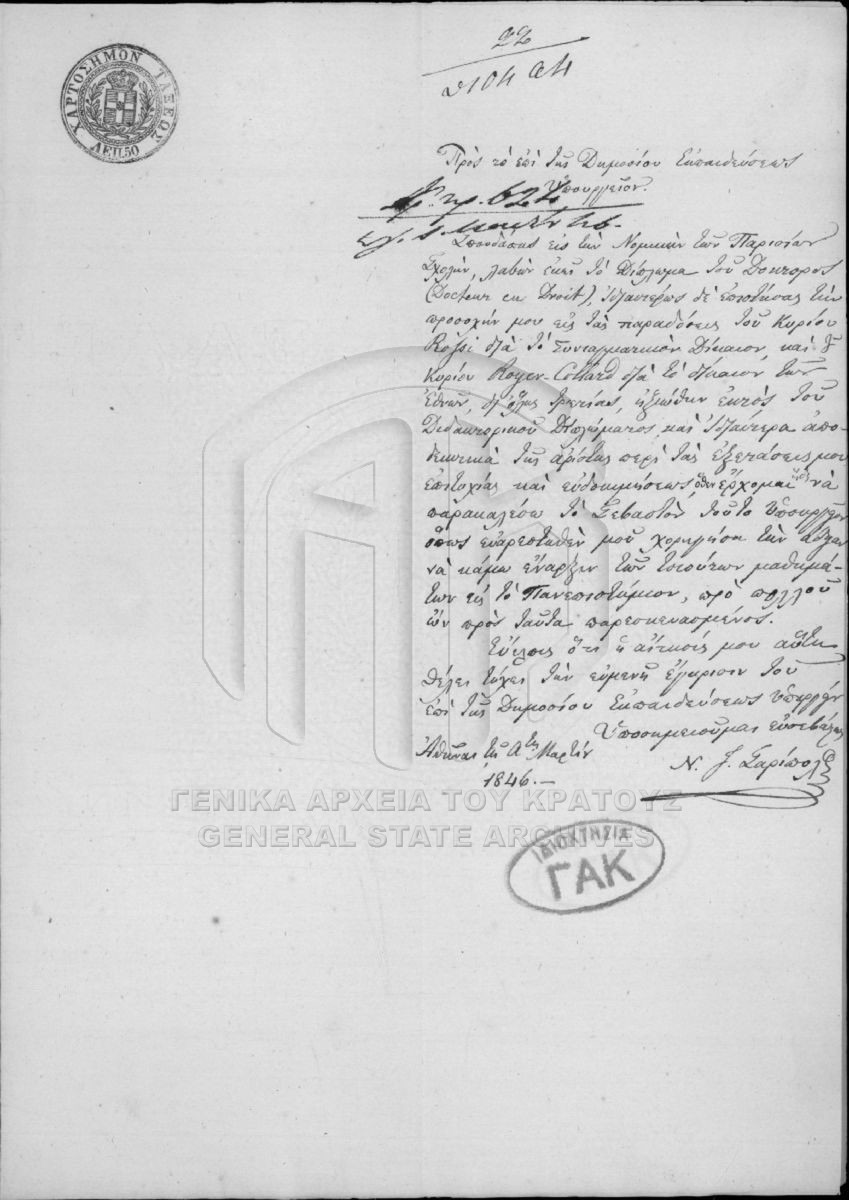 22
ΧΑΡΤΟΣΗΜΟΝ ΤΑΞΕΩΣ
ΛΕΠ.50
Πρὸς τὸ ἐπὶ τῆς Δημοσίου Ἐκπαιδεύσεως
Ὑπουργεῖον.
Ἀρ. πρ. 622
Σπουδάσας εἰς τὴν Νομικὴν τῶν Παρισίων
Σχολὴν, λαβὼν ἐκεῖ τὸ Δίπλωμα τοῦ Δόκτορος
(Docteur en Droit), ἰδιαιτέρως δὲ ἐπιστήσας τὴν
προσοχήν μου εἰς τὰς παραδόσεις τοῦ Κυρίου
Rossi διὰ τὸ Συνταγματικὸν Δίκαιον, καὶ τοῦ
Κυρίου Royer-Collard διὰ τὸ δίκαιον τῶν
Ἐθνῶν, δι' ὅλης τριετίας, ἠξιώθην ἐκτὸς τοῦ
Διδακτορικοῦ Διπλώματος καὶ ἰδιαίτερα ἀπο-
δεικτικὰ τῆς ἀρίστης περὶ τὰς ἐξετάσεις μου
ἐπιτυχίας καὶ εὐδοκιμήσεως, ὅθεν ἔρχομαι νὰ
παρακαλέσω τὸ Σεβαστὸν τοῦτο Ὑπουργεῖον
ὅπως εὐαρεστηθὲν μοὶ χορηγήσῃ τὴν ἄδειαν
νὰ κάμω ἔναρξιν τῶν τοιούτων μαθημά-
των εἰς τὸ Πανεπιστήμιον, πρὸ πολλοῦ
ὢν πρὸς ταῦτα παρεσκευασμένος.
Εὔελπις ὅτι ἡ αἴτησίς μου αὕτη
θέλει τύχει τὴν εὐμενῆ ἔγκρισιν τοῦ
ἐπὶ τῆς Δημοσίου Ἐκπαιδεύσεως Ὑπουργείου
Ὑποσημειοῦμαι εὐσεβάστως
Ἀθῆναι τῇ α τῃ Μαρτίου
1846.—
Ν. Ι. Σαρίπολος
ΓΕΝΙΚΑ ΑΡΧΕΙΑ ΤΟΥ ΚΡΑΤΟΥΣ
GENERAL STATE ARCHIVES
ΙΔΙΟΚΤΗΣΙΑ
ΓΑΚ